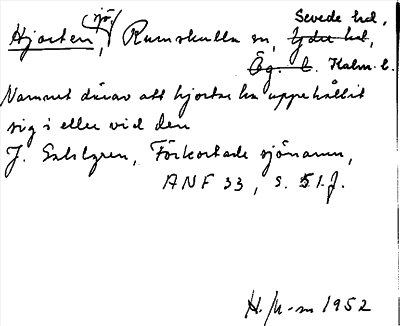 Hjorten, sjö, Rumskulla sn, Sevede hd,
Ydre hd,
Ög. l. Kalm. l.
Namnet därav att hjortar ha uppehållit
sig i eller vid den
J. Sahlgren, Förkortade sjönamn,
ANF 33, s. 51 f.
H. M-m 1952